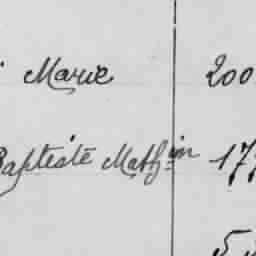 Marie 200
Baptiste Math.in 177